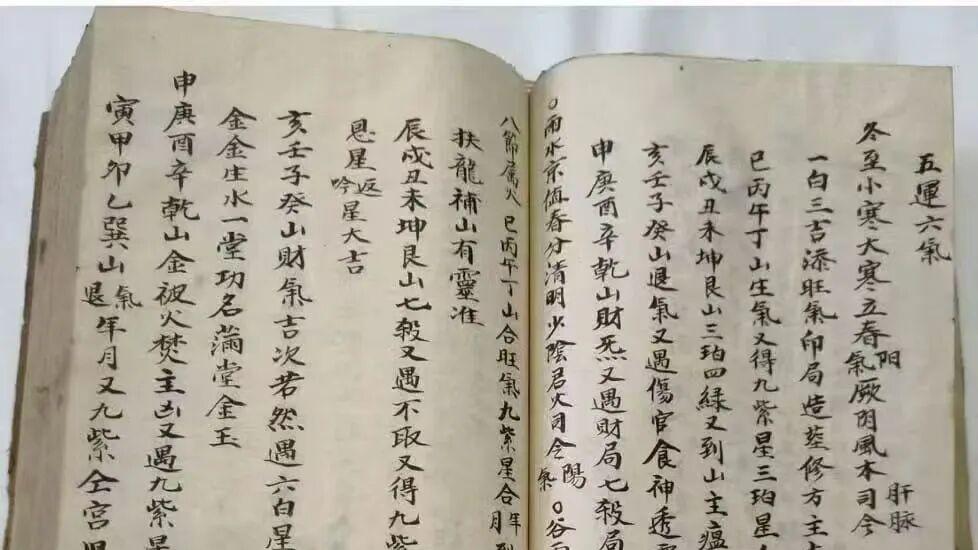 五運六氣
冬至小寒大寒立春陽氣厥阴風木司令肝脉
一白三吉添旺氣印局造塟修方主
巳丙午丁山生氣又得九紫星三珀星
辰戍丑未坤艮山三珀四緑又到山主瘟
亥壬子癸山退氣又遇傷官食神透
申庚酉辛乾山財炁又遇財局七殺局
○雨水京值春分清明少陰君火司令陽氣○谷雨
八節属火巳丙午丁山合旺氣九紫星合年月到
扶龍補山有靈准
辰戍丑未坤艮山七殺又遇不取又得九紫
恩星返吟星大吉
亥壬子癸山財氣吉次若然遇六白星
金金生水一堂功名滿堂金玉
申庚酉辛乾山金被火焚主凶又遇九紫星
寅甲卯乙巽山退氣年月又九紫仝宫